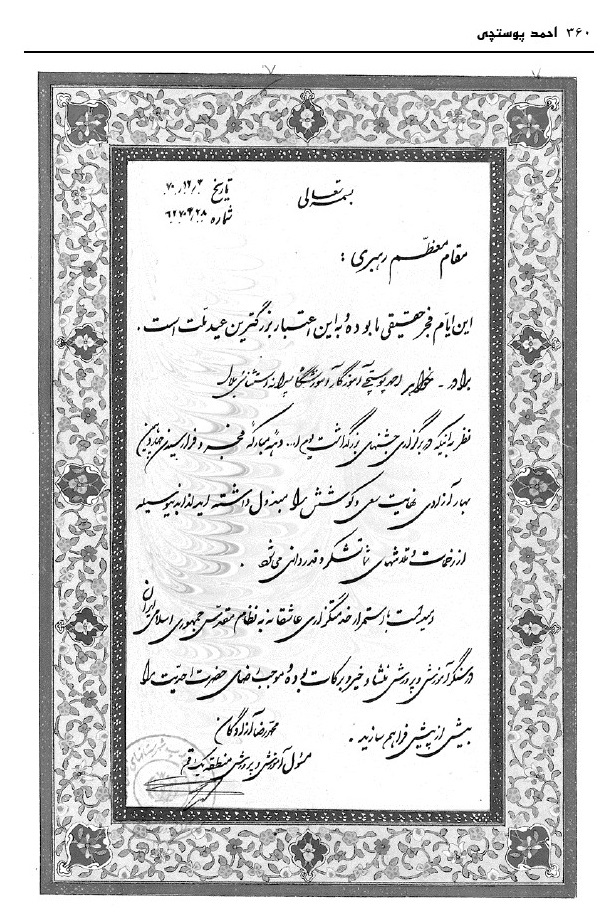 ۳۶۰ احمد پوستچی
بسمه تعالی
تاریخ ۷۰/۱۲/۳
شماره ۶۲۷۰۳۲۸
مقام معظّم رهبری :
این ایّام فجر حقیقی ما بوده و به این اعتبار بزرگترین عید ملّت است .
برادر - خواهر احمد پوستچی آموزگار آموزشگاه پسرانه راهنمائی بلال
نظر به اینکه در برگزاری جشنهای بزرگداشت یوم ا... دهه مبارکه فجر و فرا رسیدن
بهار آزادی نهایت سعی و کوشش را مبذول داشته اید لذا بدینوسیله
از زحمات و تلاشهای شما تشکر و قدردانی می شود .
امید است با استمرار خدمتگزاری عاشقانه به نظام مقدّس جمهوری اسلامی ایران
در سنگر آموزش و پرورش منشاء خیر و برکات بوده و موجب رضای حضرت احدیّت را
بیش از پیش فراهم سازید .
محمدرضا آزادگان
مسئول آموزش و پرورش منطقه یک قم